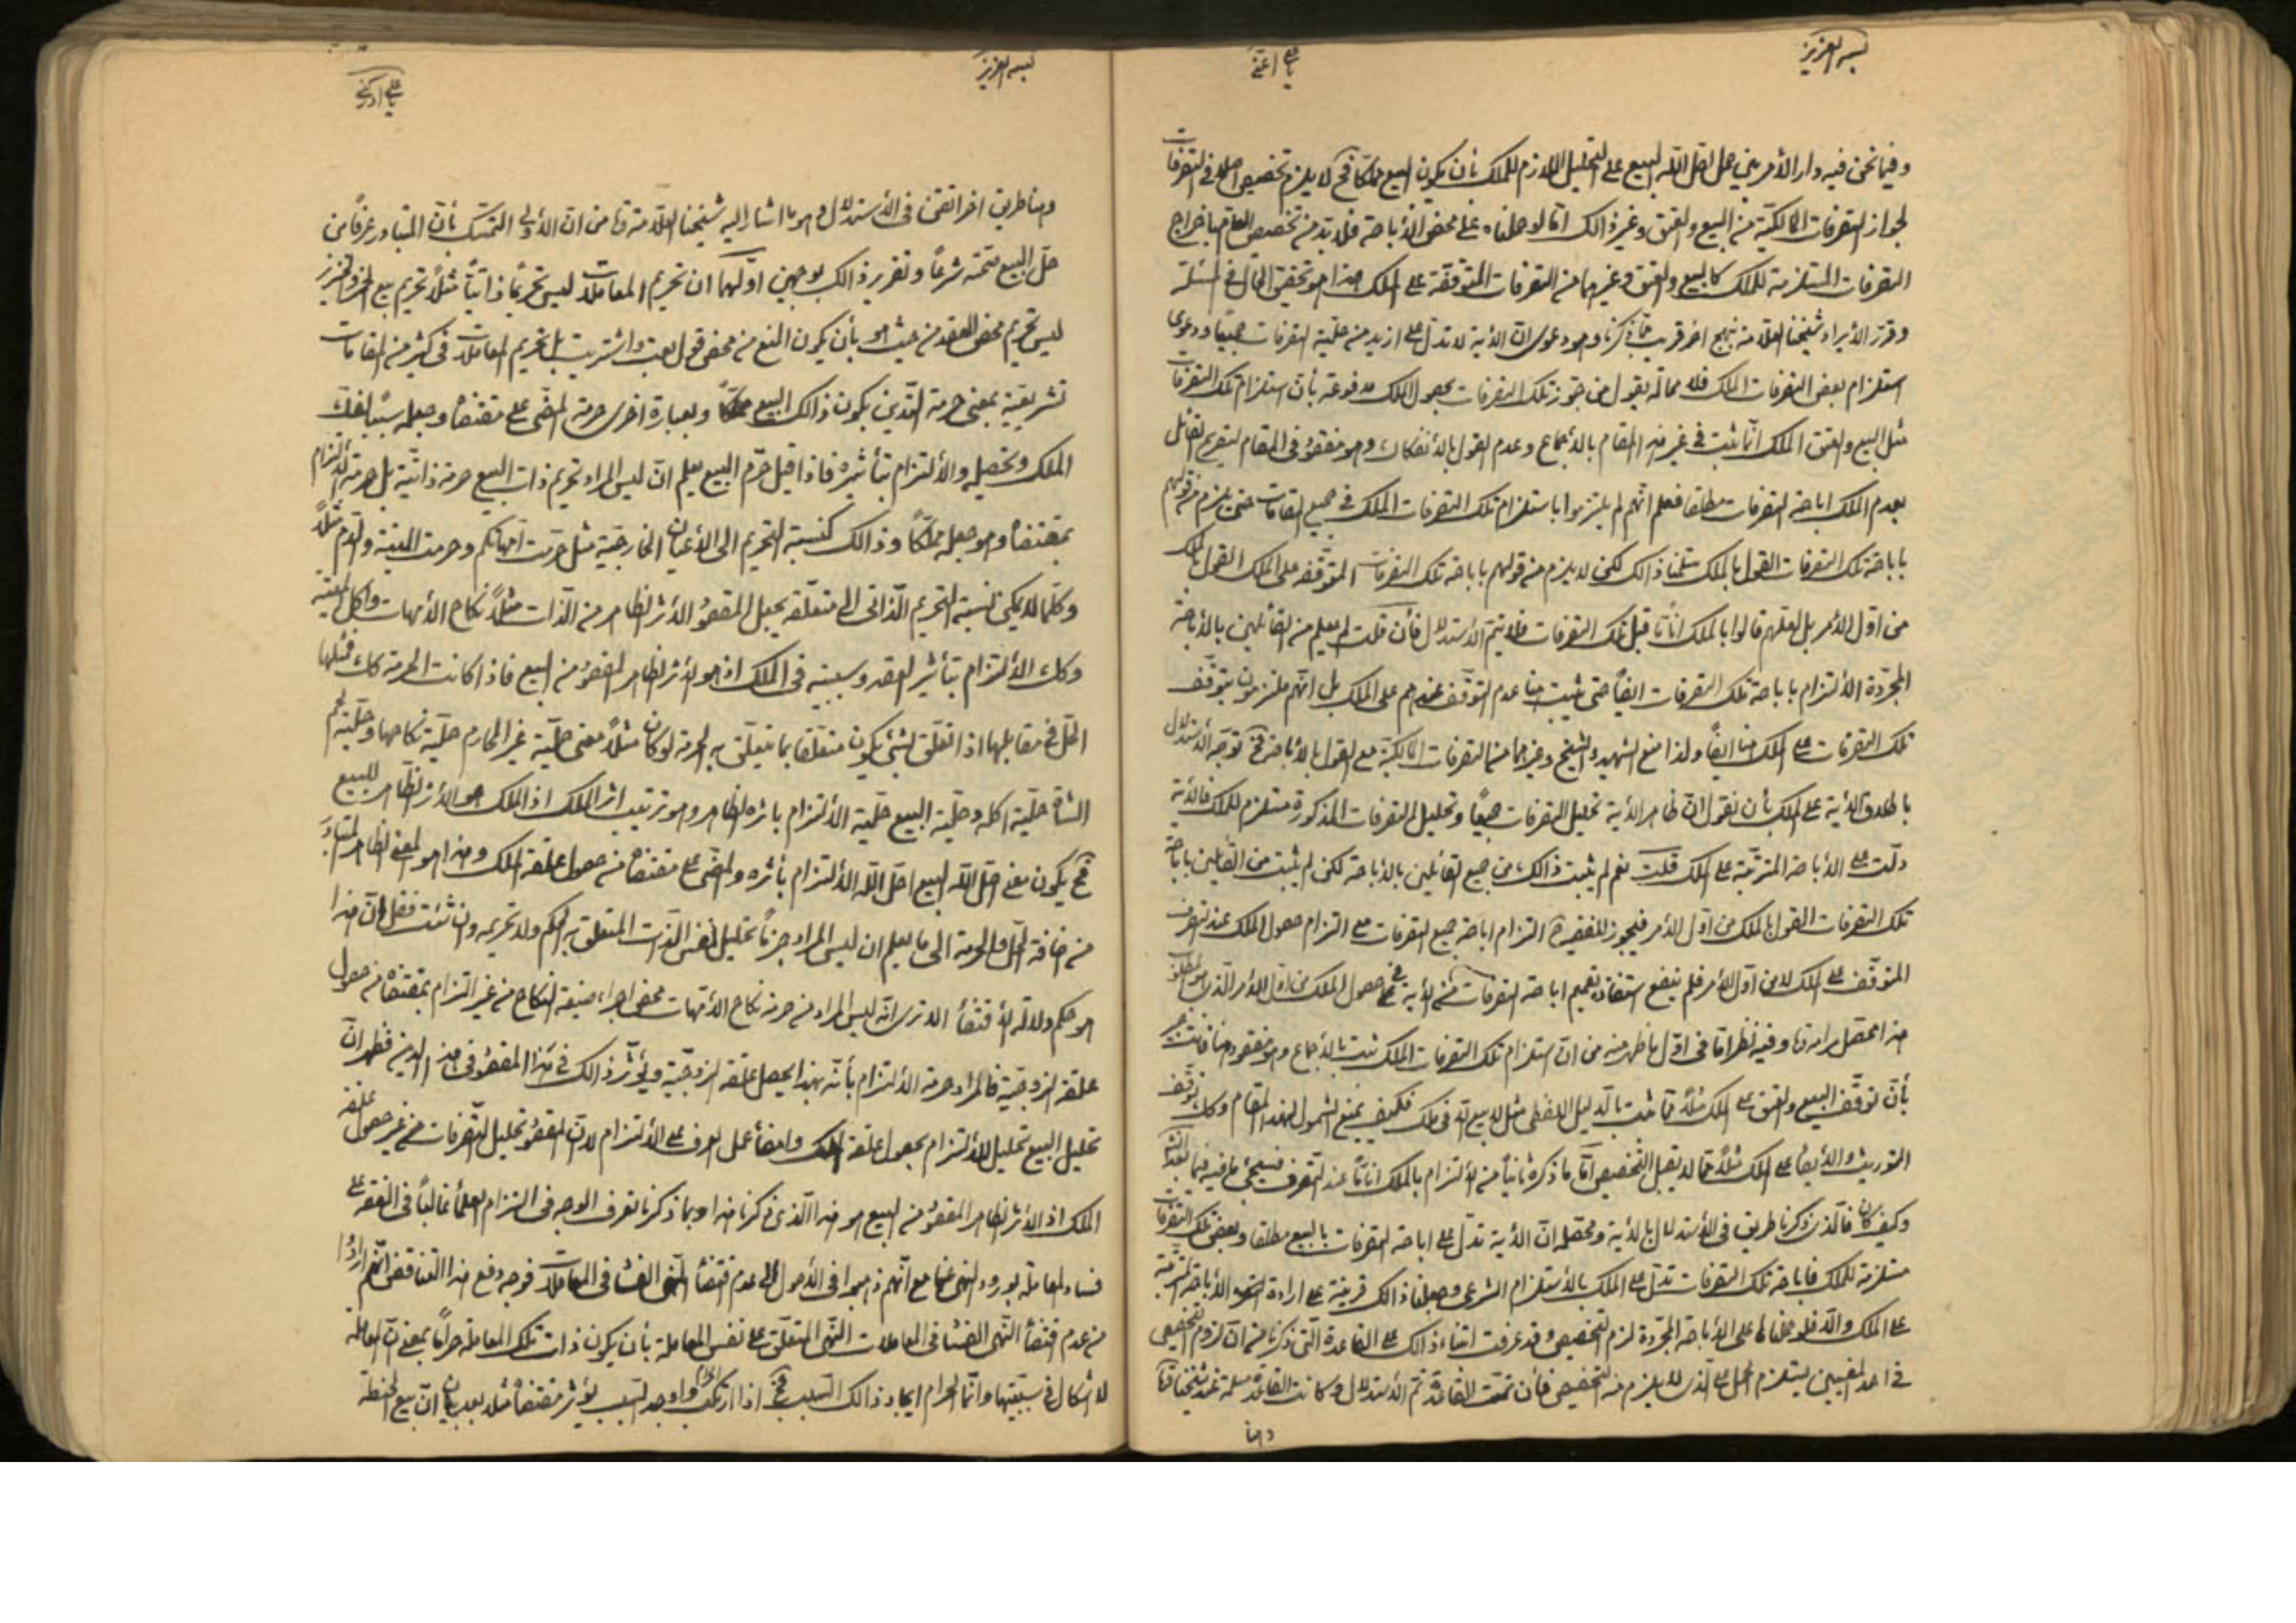 بسمه العزيز
يا علي اغثني
وفيما نحن فيه دار الأمر بين حمل احل الله البيع على التحليل اللازم للملك بأن يكون البيع مملكا فح لا يلزم تخصيص اصلا في التصرفات
لجواز التصرفات المالكية من البيع والعتق وغير ذالك امّا لو حملناه على محض الأباحة فلا بد من تخصيص العام باخراج
التصرفات المستلزمة للملك كالبيع والعتق وغيرهما من التصرفات المتوقفة على الملك هذا هو تحقيق الحال في المسئلة
وقرر الأيراد شيخنا العلامة بنهج اخر قريب مما ذكرنا وهو دعوى انّ الأية لا تدل على ازيد من حلية التصرفات جميعا ودعوى
استلزام بعض التصرفات الملك فلا محالة يقول من جوز تلك التصرفات بحصول الملك مدفوعة بأن استلزام تلك التصرفات
مثل البيع والعتق الملك انما ثبت في غير هذا المقام بالأجماع وعدم القول بالأنفكاك وهو مفقود في المقام لتصريح القائل
بعدم الملك اباحة التصرفات مطلقا فعلم انهم لم يلتزموا باستلزام تلك التصرفات الملك في جميع المقامات حتى يلزم من قولهم
باباحة تلك التصرفات القول بالملك سلمنا ذالك لكن لا يلزم من قولهم باباحة تلك التصرفات المتوقفة على الملك القول بالملك
من اول الأمر بل لعلهم قالوا بالملك اناً ما قبل تلك التصرفات فلا يتم الأستدلال فأن قلت لم يعلم من القائلين بالأباحة
المجردة الألتزام باباحة تلك التصرفات ايضاً حتى يثبت هنا عدم التوقف عندهم على الملك بل انهم ملتزمون بتوقف
تلك التصرفات على الملك هنا ايضاً ولذا منع الشهيد والشيخ وغيرهما من التصرفات المالكية مع القول بالأباحة فح توجه الأستدلال
باطلاق الأية على الملك بأن نقول انّ ظاهر الأية تحليل التصرفات جميعاً وتحليل التصرفات المذكورة مستلزم للملك فالأية
دلّت على الأباحة المترتبة على الملك قلت نعم لم يثبت ذالك من جميع القائلين بالأباحة لكن لم يثبت من القائلين باباحة
تلك التصرفات القول بالملك من اول الأمر فيجوز للفقيه ح التزام اباحة جميع التصرفات مع التزام حصول الملك عند التصرف
المتوقف على الملك لا من اول الأمر فلم ينفع استفادة تعميم اباحة التصرفات من الأية في حصول الملك من اول الأمر الذى هو المطلوب
هذا محصل مرامه وفيه نظر امّا في اول ما ظهر منه من انّ استلزام تلك التصرفات الملك ثبت بالأجماع وهو مفقود هنا
بأنّ توقف البيع والعتق على الملك مثلاً مما ثبت بالدليل اللفظى مثل لا بيع الّا في ملك فكيف يمنع الشمول لهذا المقام وكك توقف
التوريث والأيصاء على الملك مثلاً مما لا يقبل التخصيص امّا ما ذكره ثانياً من الألتزام بالملك اناً ما عند التصرف فسيجئ ما فيه فيما بعد انشاء
وكيف كان فالذى ذكرنا طريق في الأستدلال بالأية ومحصله انّ الأية تدل على اباحة التصرفات بالبيع مطلقا وبعض تلك التصرفات
مستلزمة للملك فاباحة تلك التصرفات تدل على الملك بالأستلزام الشرعى وجعلنا ذالك قرينة على ارادة الأباحة المترتبة
على الملك والّا فلو حملنا على الأباحة المجردة لزم التخصيص وقد عرفت اثناء ذالك على القاعدة التى ذكرنا من ان لزوم التخصيص
في احد المعنيين يستلزم الحمل على الذى لا يلزم منه التخصيص فأن تمت القاعدة تم الأستدلال وكانت القاعدة مسلمة عند شيخنا
وهنا
بسمه العزيز
يا علي ادركني
وهنا طريق اخر اتقن في الأستدلال وهو ما اشار اليه شيخنا العلامة من انّ الأولى التمسك بأن المتبادر عرفاً من
حلّ البيع صحته شرعاً وتقرير ذالك بوجهين اولهما ان تحريم المعاملات ليس تحريماً ذاتياً مثلاً تحريم بيع الخمر والخنزير
ليس تحريم محض العقد من حيث هو بأن يكون المنع من محض قول بعت واشتريت بل تحريم المعاملات في كثير من المقامات
تشريعية بمعنى حرمة التدين بكون ذالك البيع مملكاً وبعبارة اخرى حرمة المضى على مقتضاه وجعله سبباً لفك
الملك وتحصيله والألتزام بتأثيره فاذا قيل حرّم البيع يعلم انّ ليس المراد تحريم ذات البيع حرمة ذاتية بل حرمة الألتزام
بمقتضاه وهو جعله مملكاً وذالك كنسبة التحريم الى الأعيان الخارجية مثل حرمت امهاتكم وحرمت الميتة والدم مثلاً
وكلما لا يمكن نسبة التحريم الذاتى الى متعلقه يجعل المقصود الأثر الظاهر من الذات مثلاً نكاح الأمهات واكل الميتة
وكك الألتزام بتأثير العقد وسببيته في الملك اذ هو الأثر الظاهر المقصود من البيع فاذا كانت الحرمة كك فمثلها
الحلّ في مقابلها اذ الحلّ لشئ يكون متعلقا بما يتعلق به الحرمة لو كان مثلاً معنى حلية غير المحارم حلية نكاحها وحلية لحم
الشاة حلية اكله وحلية البيع حلية الألتزام باثره الظاهر وهو ترتيب اثر الملك اذ الملك هو الأثر الظاهر للبيع
فح يكون معنى احل الله البيع احل الله الألتزام بأثره والمضى على مقتضاه من حصول علقة الملك وهذا هو المعنى الظاهر المتبادر
من اضافة الحل والحرمة الى ما يعلم ان ليس المراد جزماً تحليل نفس الذات المتعلق به الحكم ولا تحريمه وان شئت فقل انّ هذا
هو حكم دلالة الأقتضاء الا ترى انّه ليس المراد من حرمة نكاح الأمهات محض اجراء صيغة النكاح من غير التزام بمقتضاه من حصول
علقة الزوجية فالمراد حرمة الألتزام بأنّه بهذا يحصل علقة الزوجية ويؤثر ذالك في هذا المقصود فظهر انّ
تحليل البيع تحليل للألتزام بحصول علقة الملك وامضاء عمل العرف على الألتزام لا انّ المقصود تحليل التصرفات من غير حصول علقة
الملك اذ الأثر الظاهر المقصود من البيع هو هذا الذى ذكرنا هذا وبما ذكرنا تعرف الوجه في التزام العلماء غالباً في الفقه على
فساد المعاملة بورود النهى عنها مع انهم ذهبوا في الأصول الى عدم اقتضاء النهى الفساد في المعاملات فوجه دفع هذا التناقض انهم ارادوا
من عدم اقتضاء النهى الفساد في المعاملات النهى المتعلق على نفس المعاملة بأن يكون ذات تلك المعاملة حراماً بمعنى انّ المعاملة
لا اشكال في سببيتها وانّما الحرام ايجاد ذالك السبب فح اذا ارتكب واوجد السبب يؤثر مقتضاه مثلا بعد بيان انّ بيع الحنطة